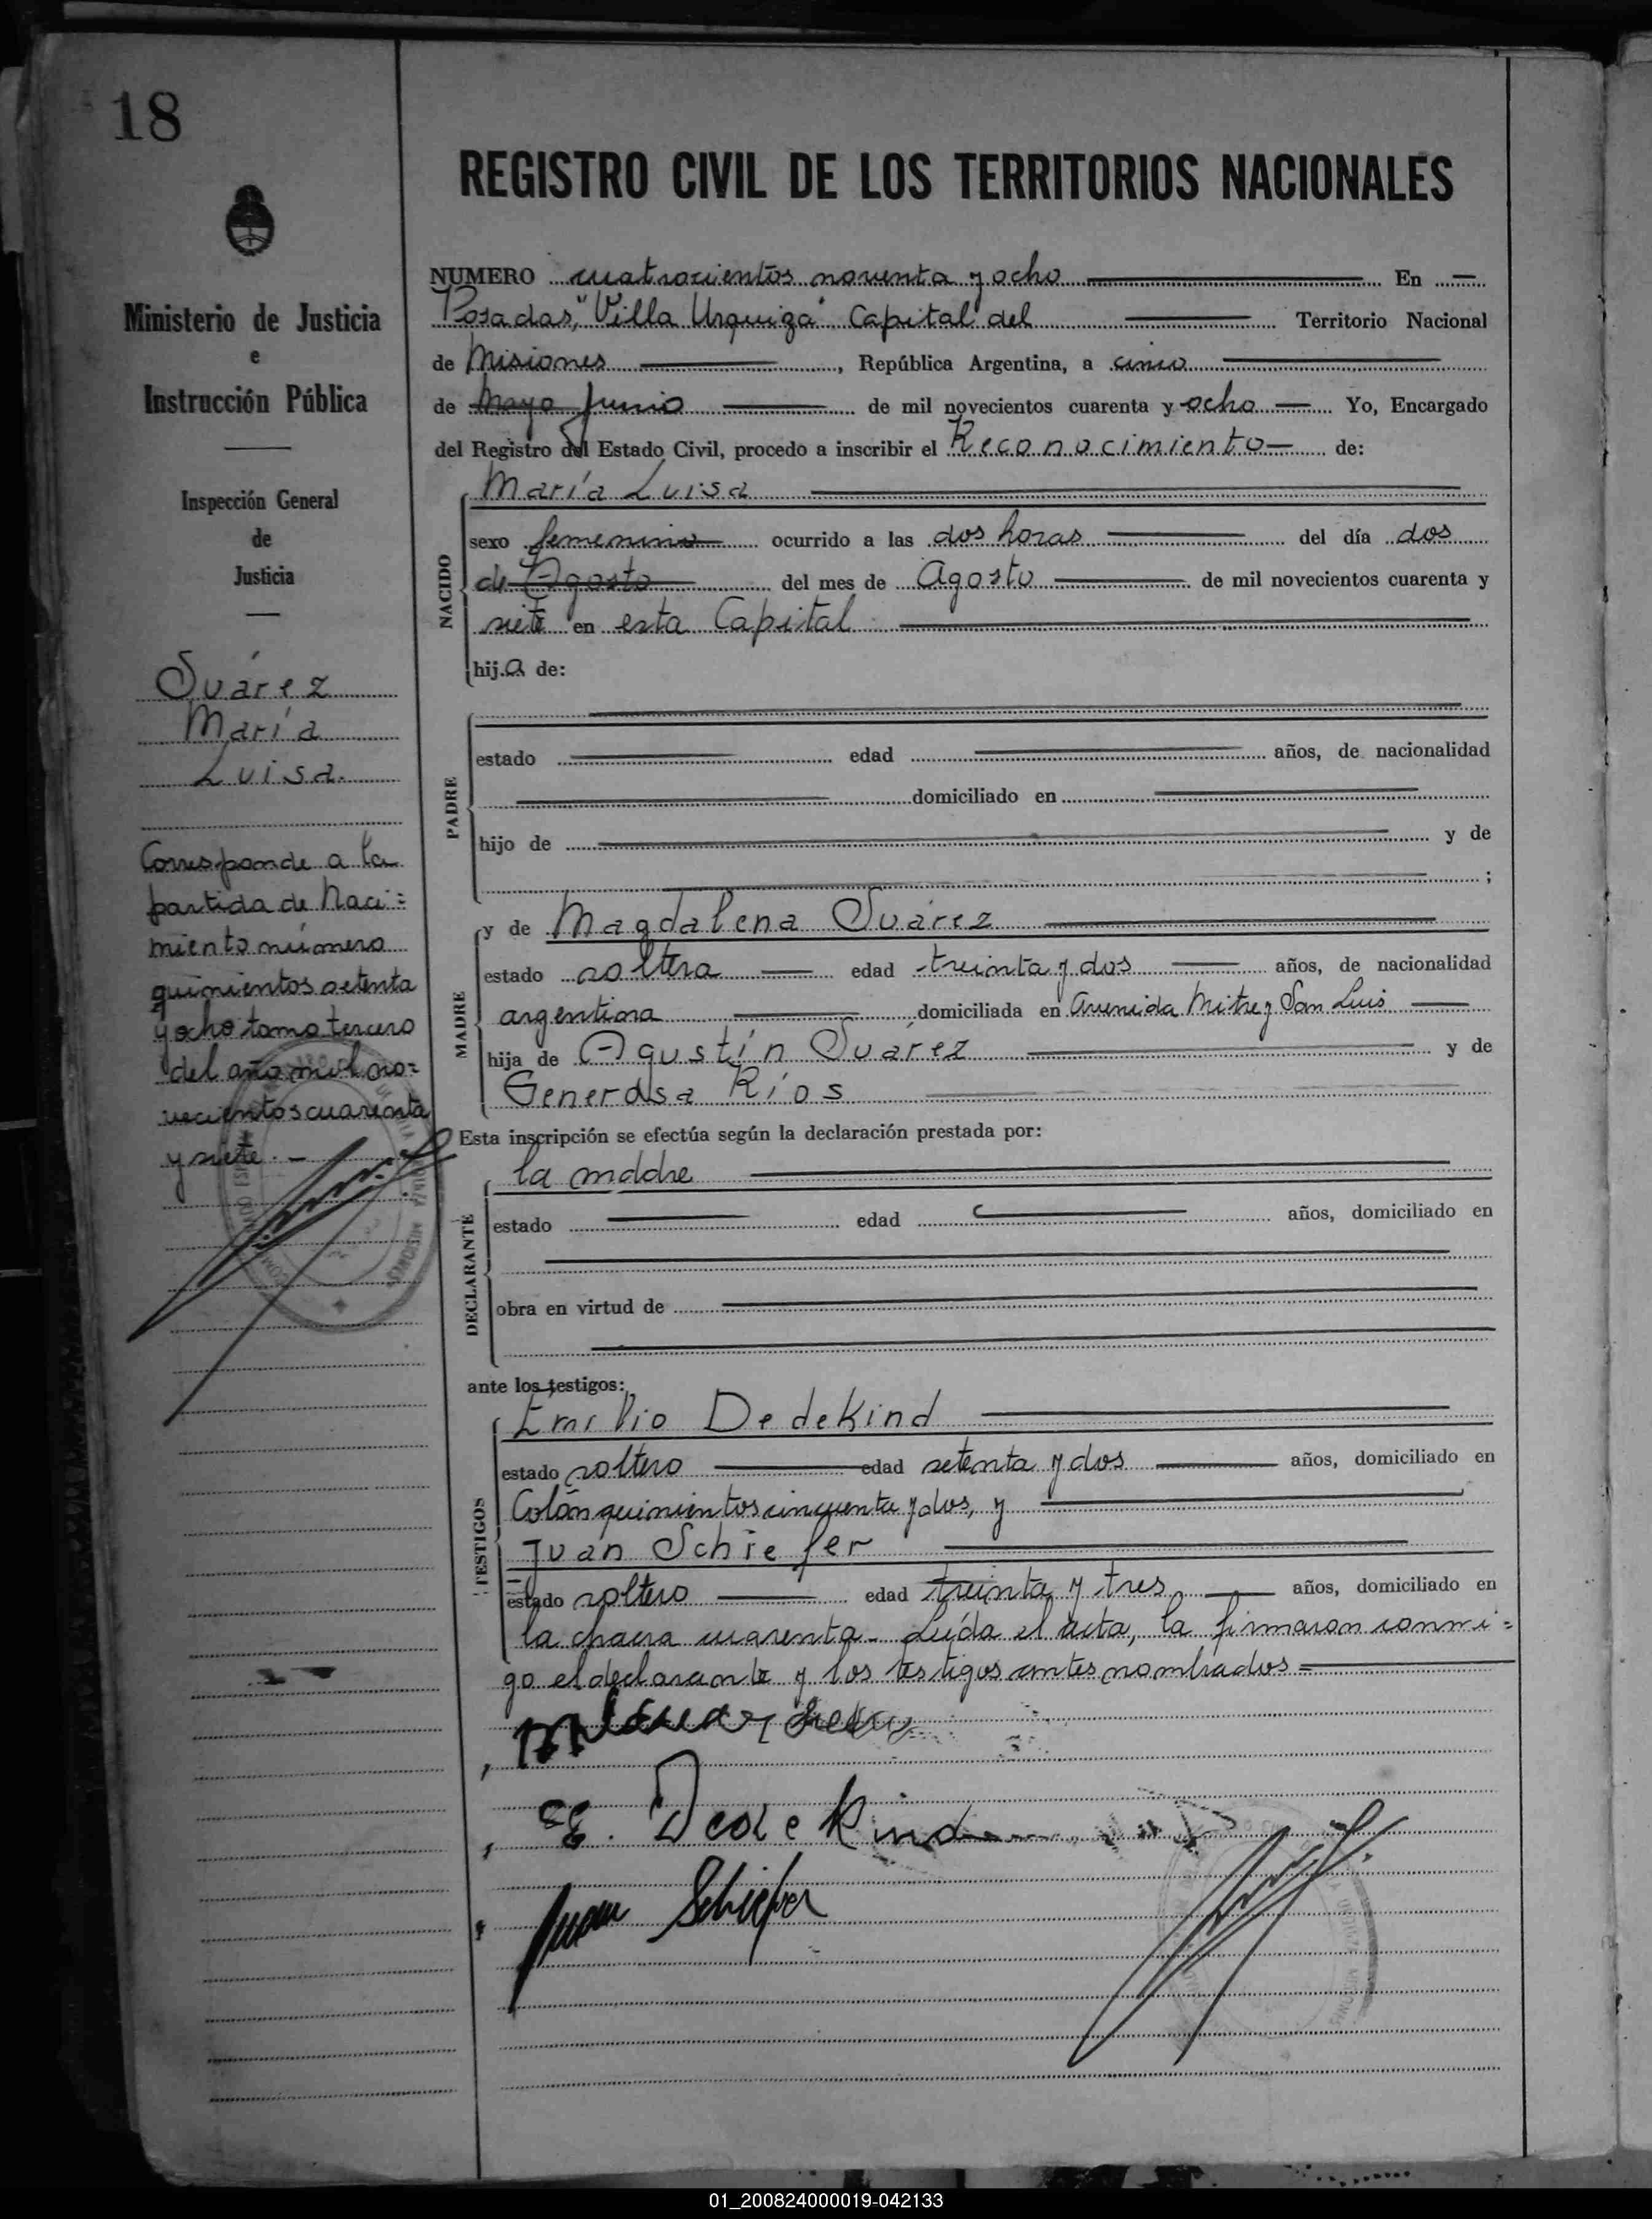 18
Ministerio de Justicia
e
Instrucción Pública
Inspección General
de
Justicia
Suárez
María
Luisa.
Corresponde a la
partida de Naci=
miento número
quinientos setenta
y ocho tomo tercero
del año mil no=
vecientos cuarenta
y siete. -
REGISTRO CIVIL DE LOS TERRITORIOS NACIONALES
NUMERO cuatrocientos noventa y ocho En
Posadas, "Villa Urquiza" Capital del Territorio Nacional
de Misiones, República Argentina, a cinco
de Mayo Junio de mil novecientos cuarenta y ocho Yo, Encargado
del Registro del Estado Civil, procedo a inscribir el Reconocimiento de:
NACIDO
María Luisa
sexo femenino ocurrido a las dos horas del día dos
de Agosto del mes de Agosto de mil novecientos cuarenta y
siete en esta Capital
hij.a de:
PADRE
estado edad años, de nacionalidad
domiciliado en
hijo de y de
;
MADRE
y de Magdalena Suárez
estado soltera edad treinta y dos años, de nacionalidad
argentina domiciliada en Avenida Mitre y San Luis
hija de Agustín Suárez y de
Generosa Ríos
Esta inscripción se efectúa según la declaración prestada por:
DECLARANTE
la madre
estado edad años, domiciliado en
obra en virtud de
ante los testigos:
TESTIGOS
Emilio Dedekind
estado soltero edad setenta y dos años, domiciliado en
Colón quinientos cincuenta y dos, y
Juan Schiefer
estado soltero edad treinta y tres años, domiciliado en
la chacra cuarenta - Leída el acta, la firmaron conmi=
go el declarante y los testigos antes nombrados =
E. Dedekind
Juan Schiefer
01_200824000019-042133